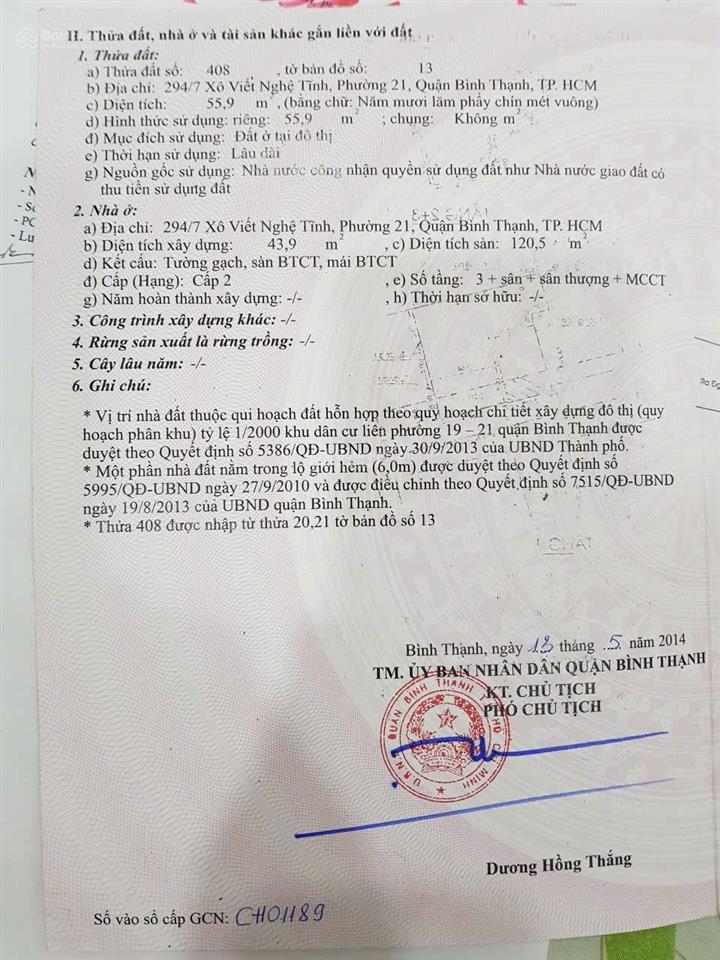 II. Thửa đất, nhà ở và tài sản khác gắn liền với đất
1. Thửa đất:
a) Thửa đất số: 408 , tờ bản đồ số: 13
b) Địa chỉ: 294/7 Xô Viết Nghệ Tĩnh, Phường 21, Quận Bình Thạnh, TP. HCM
c) Diện tích: 55,9 m2 , (bằng chữ: Năm mươi lăm phẩy chín mét vuông)
d) Hình thức sử dụng: riêng: 55,9 m2 ; chung: Không m2
đ) Mục đích sử dụng: Đất ở tại đô thị
e) Thời hạn sử dụng: Lâu dài
g) Nguồn gốc sử dụng: Nhà nước công nhận quyền sử dụng đất như Nhà nước giao đất có
thu tiền sử dụng đất
2. Nhà ở:
a) Địa chỉ: 294/7 Xô Viết Nghệ Tĩnh, Phường 21, Quận Bình Thạnh, TP. HCM
b) Diện tích xây dựng: 43,9 m2 , c) Diện tích sàn: 120,5 m2
d) Kết cấu: Tường gạch, sàn BTCT, mái BTCT
đ) Cấp (Hạng): Cấp 2 , e) Số tầng: 3 + sân + sân thượng + MCCT
g) Năm hoàn thành xây dựng: -/- , h) Thời hạn sở hữu: -/-
3. Công trình xây dựng khác: -/-
4. Rừng sản xuất là rừng trồng: -/-
5. Cây lâu năm: -/-
6. Ghi chú:
* Vị trí nhà đất thuộc qui hoạch đất hỗn hợp theo quy hoạch chi tiết xây dựng đô thị (quy
hoạch phân khu) tỷ lệ 1/2000 khu dân cư liên phường 19 – 21 quận Bình Thạnh được
duyệt theo Quyết định số 5386/QĐ-UBND ngày 30/9/2013 của UBND Thành phố.
* Một phần nhà đất nằm trong lộ giới hẻm (6,0m) được duyệt theo Quyết định số
5995/QĐ-UBND ngày 27/9/2010 và được điều chỉnh theo Quyết định số 7515/QĐ-UBND
ngày 19/8/2013 của UBND quận Bình Thạnh.
* Thửa 408 được nhập từ thửa 20,21 tờ bản đồ số 13
Bình Thạnh, ngày 13 tháng 5 năm 2014
TM. ỦY BAN NHÂN DÂN QUẬN BÌNH THẠNH
KT. CHỦ TỊCH
PHÓ CHỦ TỊCH
U.B.N.D QUẬN BÌNH THẠNH T.P HỒ CHÍ MINH
Dương Hồng Thắng
Số vào sổ cấp GCN: CH01189